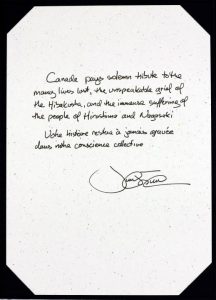 Canada pays solemn tribute to the
many lives lost, the unspeakable grief of
the Hibakusha, and the immense suffering of
the people of Hiroshima and Nagasaki
Votre histoire restera à jamais gravée
dans notre conscience collective